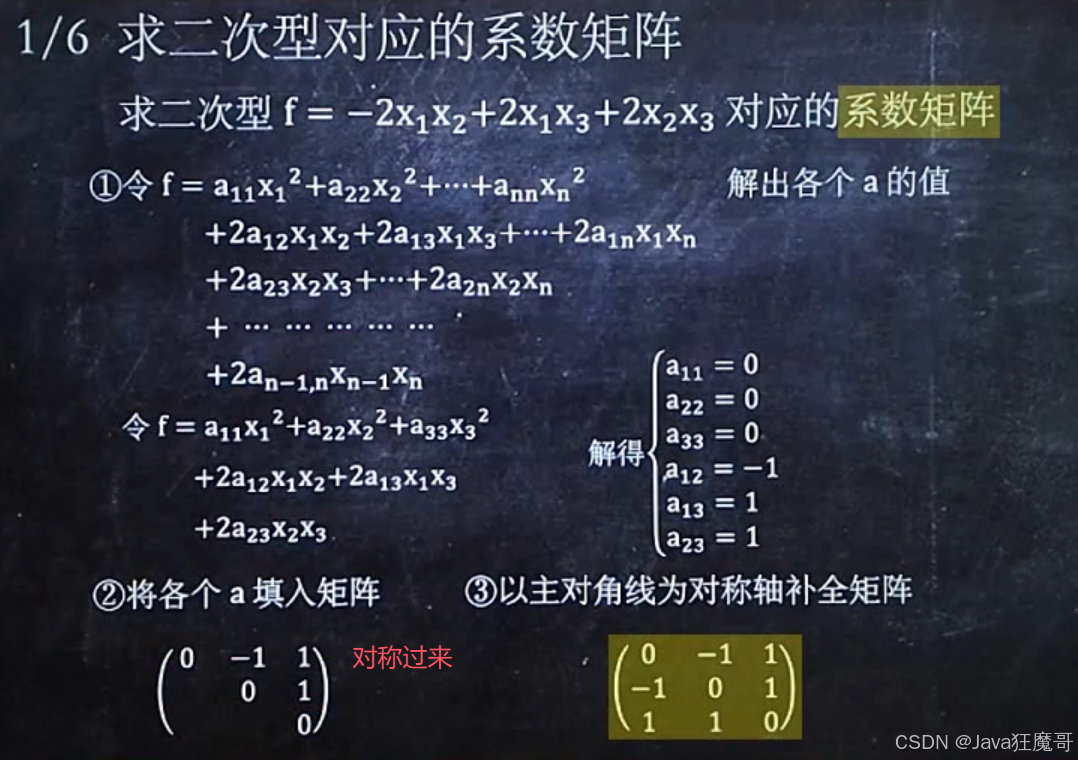 1/6 求二次型对应的系数矩阵
求二次型 f = −2x₁x₂+2x₁x₃+2x₂x₃ 对应的系数矩阵
①令 f = a₁₁x₁²+a₂₂x₂²+⋯+aₙₙxₙ² 解出各个 a 的值
+2a₁₂x₁x₂+2a₁₃x₁x₃+⋯+2a₁ₙx₁xₙ
+2a₂₃x₂x₃+⋯+2a₂ₙx₂xₙ
+ ⋯ ⋯ ⋯ ⋯ ⋯
+2aₙ₋₁,ₙxₙ₋₁xₙ
令 f = a₁₁x₁²+a₂₂x₂²+a₃₃x₃²
+2a₁₂x₁x₂+2a₁₃x₁x₃
+2a₂₃x₂x₃
解得
a₁₁ = 0
a₂₂ = 0
a₃₃ = 0
a₁₂ = −1
a₁₃ = 1
a₂₃ = 1
②将各个 a 填入矩阵
0 −1 1
0 1
0
对称过来
③以主对角线为对称轴补全矩阵
0 −1 1
−1 0 1
1 1 0
CSDN @Java狂魔哥